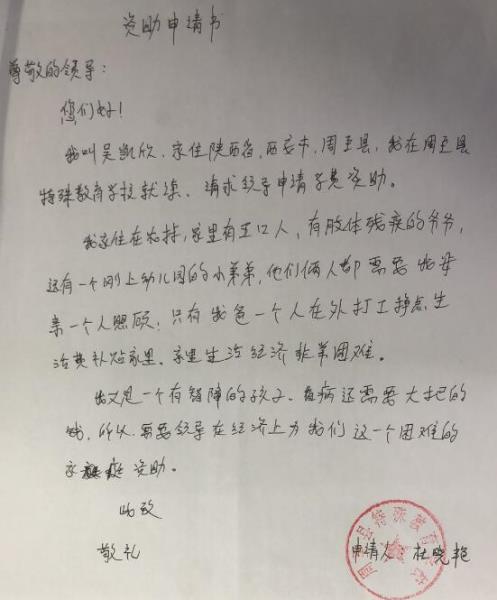 资助申请书
尊敬的领导：
您们好！
我叫吴凯欣，家住陕西省，西安市，周至县，我在周至县
特殊教育学校就读、请求领导申请学费资助。
我家住在农村，家里有五口人，有肢体残疾的爷爷，
还有一个刚上幼儿园的小弟弟，他们俩人都需要我母
亲一个人照顾；只有我爸一个人在外打工挣点生
活费补贴家里、家里生活经济非常困难。
我又是一个有智障的孩子、看病还需要大把的
钱，所以，需要领导在经济上为我们这一个困难的
家庭资助。
此致
敬礼
申请人 杜晓艳
周至县特殊教育学校